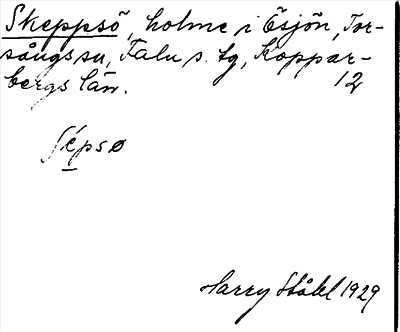 Skeppsö, holme i Ösjön, Tor-
sångs sn, Falu s. tg, Koppar-
bergs län. 12
sépsø
Harry Ståhl 1929